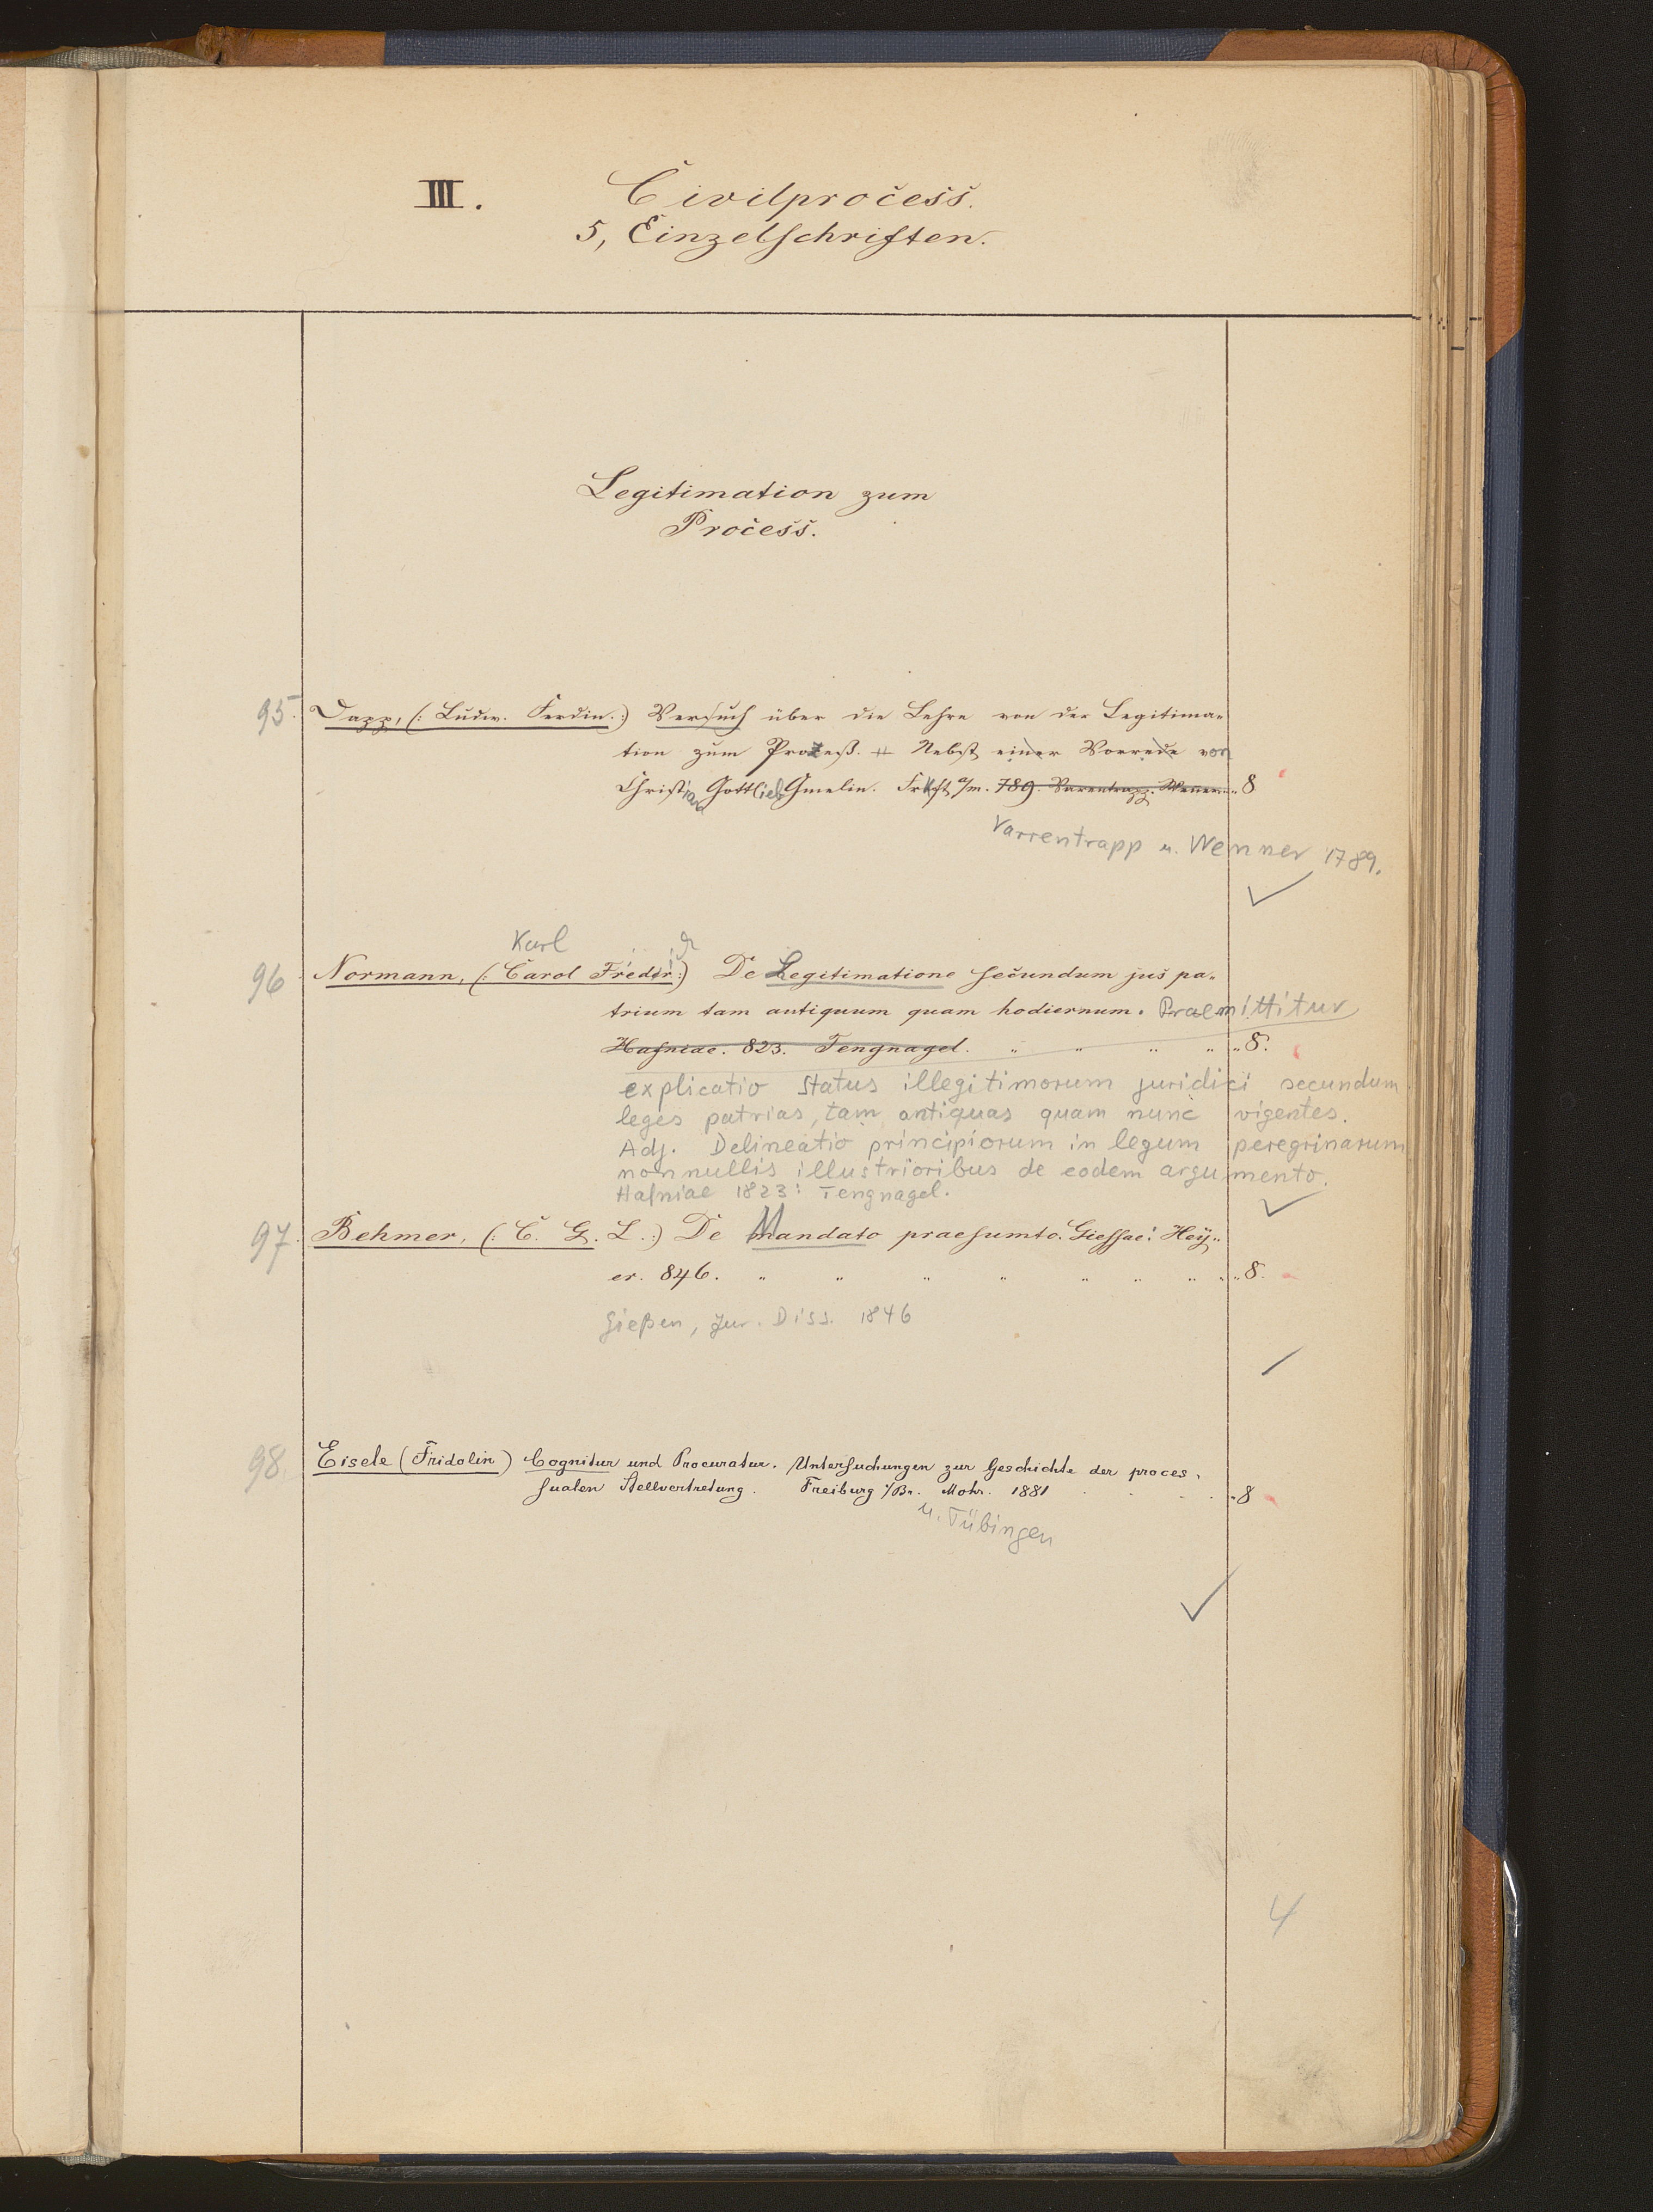 III. Civilprocess.
5, Einzelschriften.
Legitimation zum
Process.
95. Dapp, (: Ludw. Ferdin. :) Versuch über die Lehre von der Legitima-
tion zum Prozeß. # Nebst einer Vorrede von
Christian Gottlieb Gmelin. Frkft a/m. 789. Varentrapp. Wenner. 8
Varrentrapp u. Wenner 1789.
Karl
96 Normann, (: Carol Friedr :) De Legitimatione secundum jus pa-
trium tam antiquum quam hodiernum. Praemittitur
Hafniae. 823. Tengnagel. " " " " " 8.
explicatio status illegitimorum juridici secundum
leges patrias, tam antiquas quam nunc vigentes.
Adj. Delineatio principiorum in legum peregrinarum
nonnullis illustrioribus de eodem argumento.
Hafniae 1823: Tengnagel.
97. Behmer, (: C. G. L. :) De Mandato praesumto. Giessae: Hey-
er. 846. " " " " " " " " 8.
Gießen, Jur. Diss. 1846
98. Eisele (Fridolin) Cognitur und Procuratur. Untersuchungen zur Geschichte der proces-
sualen Stellvertretung. Freiburg i/Br. Mohr. 1881 . . . . 8
u. Tübingen
4